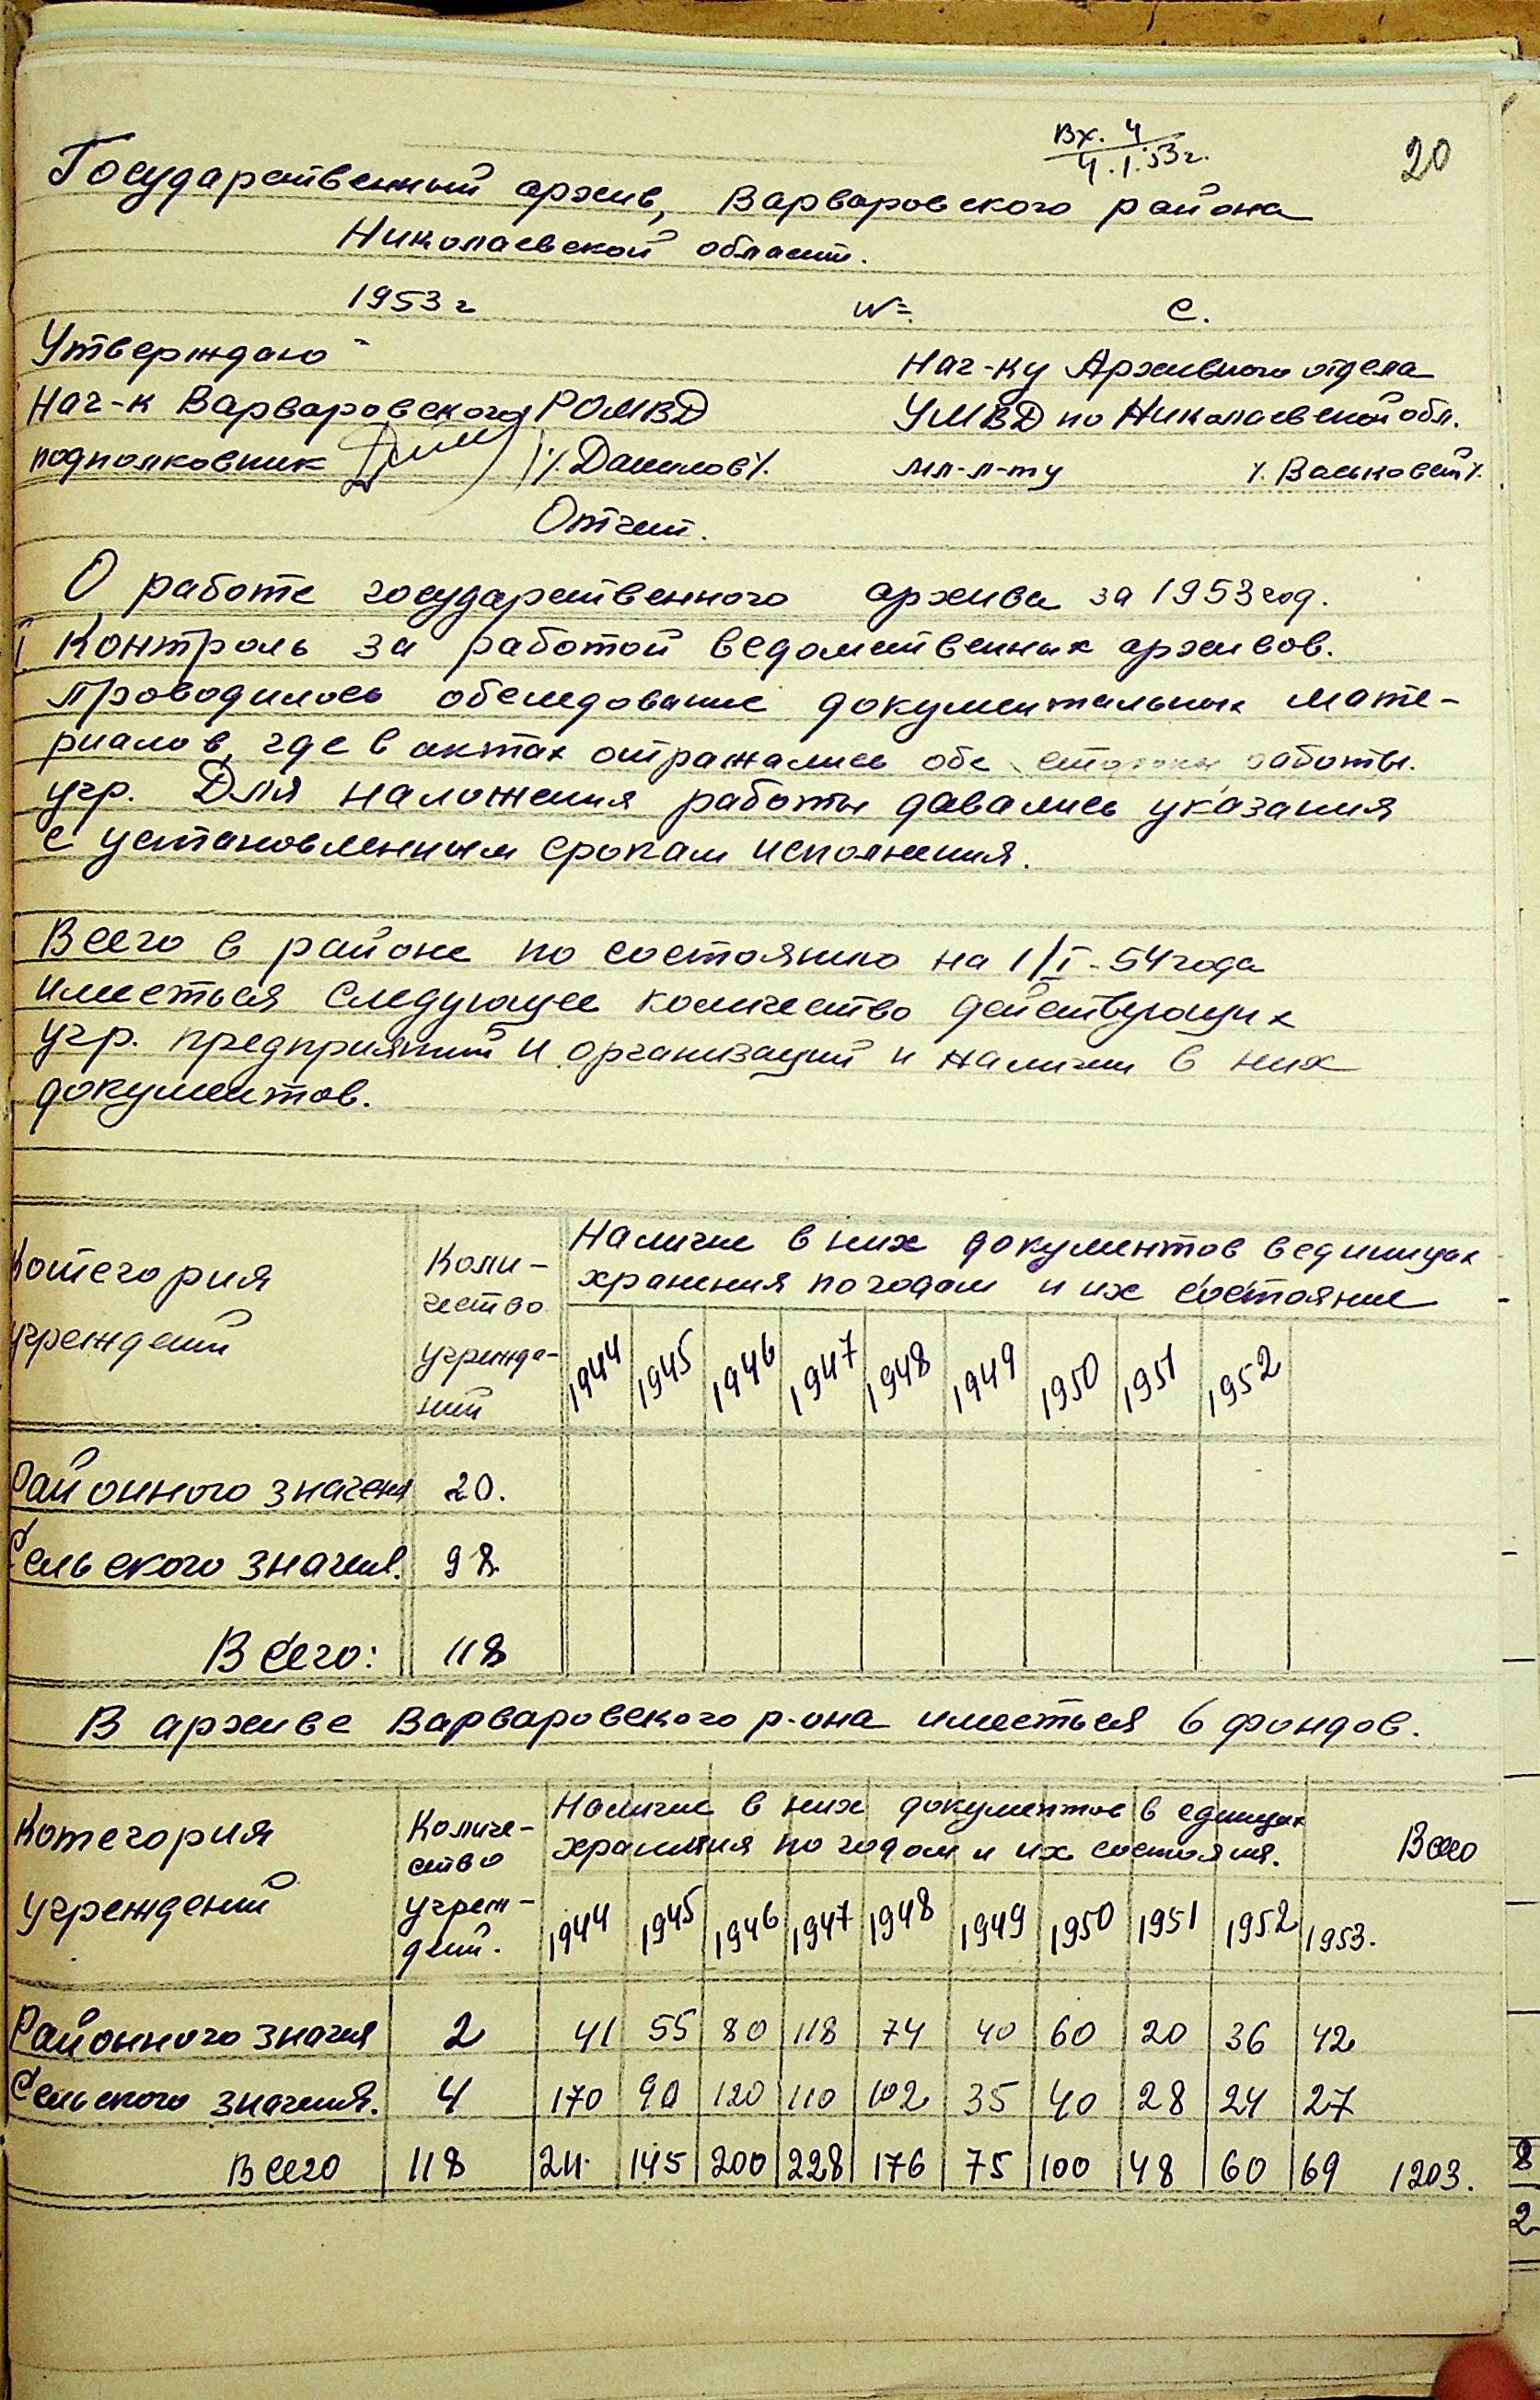 Вх. 4
4.1.53г.
20
Государственный архив, Варваровского района
Николаевской области.
1953 г № С.
Утверждаю
Нач-к Варваровского РОМВД
подполковник /Данилов/
Нач-ку Архивного отдела
УМВД по Николаевской обл.
мл-л-ту
Отчет.
О работе государственного архива за 1953 год.
I Контроль за работой ведомственных архивов.
Проводилось обследование документальных мате-
риалов, где в актах отражались обе стороны работы
учр. Для наложения работы давались указания
с установленным сроком исполнения.
Всего в районе по состоянию на 1/I-54 года
имееться следующее количество действующих
учр. предприятий и организаций и наличии в них
документов.
Котегория учреждений
Коли-
чество
учрежде-
ний
Наличие в них документов в единицах
хранения по годам и их состояние
1944 1945 1946 1947 1948 1949 1950 1951 1952
Районного значения 20.
Сельского значения. 98
Всего: 118
В архиве Варваровского р-она имееться 6 фондов.
Котегория учреждений
Количе-
ство
учреж-
дений.
Наличие в них документов в единицах
хранения по годам и их состояния.
Всего
1944 1945 1946 1947 1948 1949 1950 1951 1952 1953.
Районного значия 2 41 55 80 118 74 40 60 20 36 42
Сельского значения. 4 170 90 120 110 102 35 40 28 24 27
Всего 118 211 145 200 228 176 75 100 48 60 69 1203.
8
2